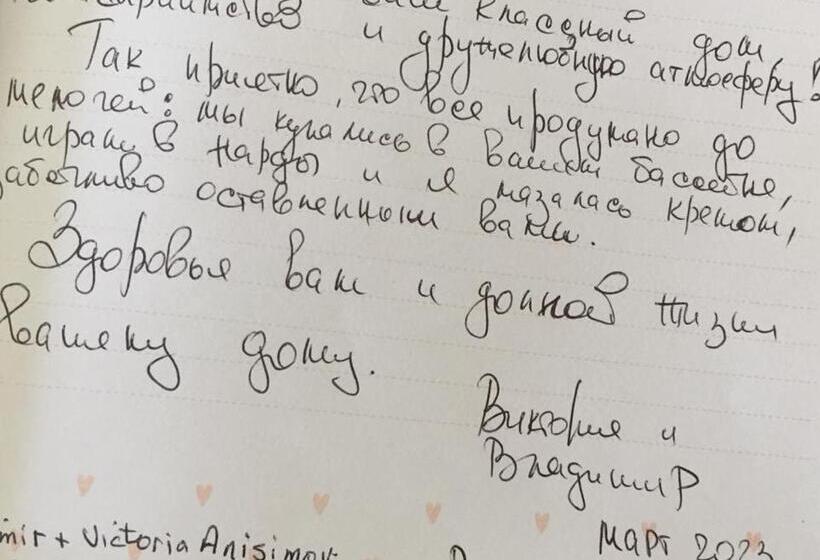 ваш классный дом,
и дружелюбную атмосферу!
Так приятно, что все продумано до
мелочей: мы купались в вашем бассейне,
играли в нарды и я мазалась кремом,
заботливо оставленным вами.
Здоровья вам и долгой жизни
вашему дому.
Виктория и
Владимир
mir + Victoria
Март 2023